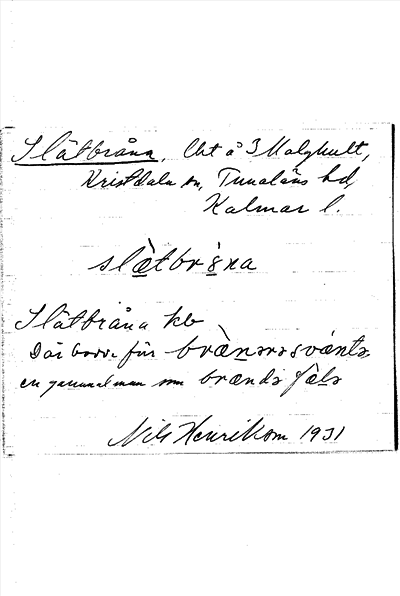 Slätbråna, Lht å 3 Malghult,
Kristdala sn, Tunaläns hd,
Kalmar l.
slæ̀tbrǻna
Slätbråna kb
Där bodde för bræ̀nərəsvántə
en gammal man som brændə
Nils Henrikson 1931